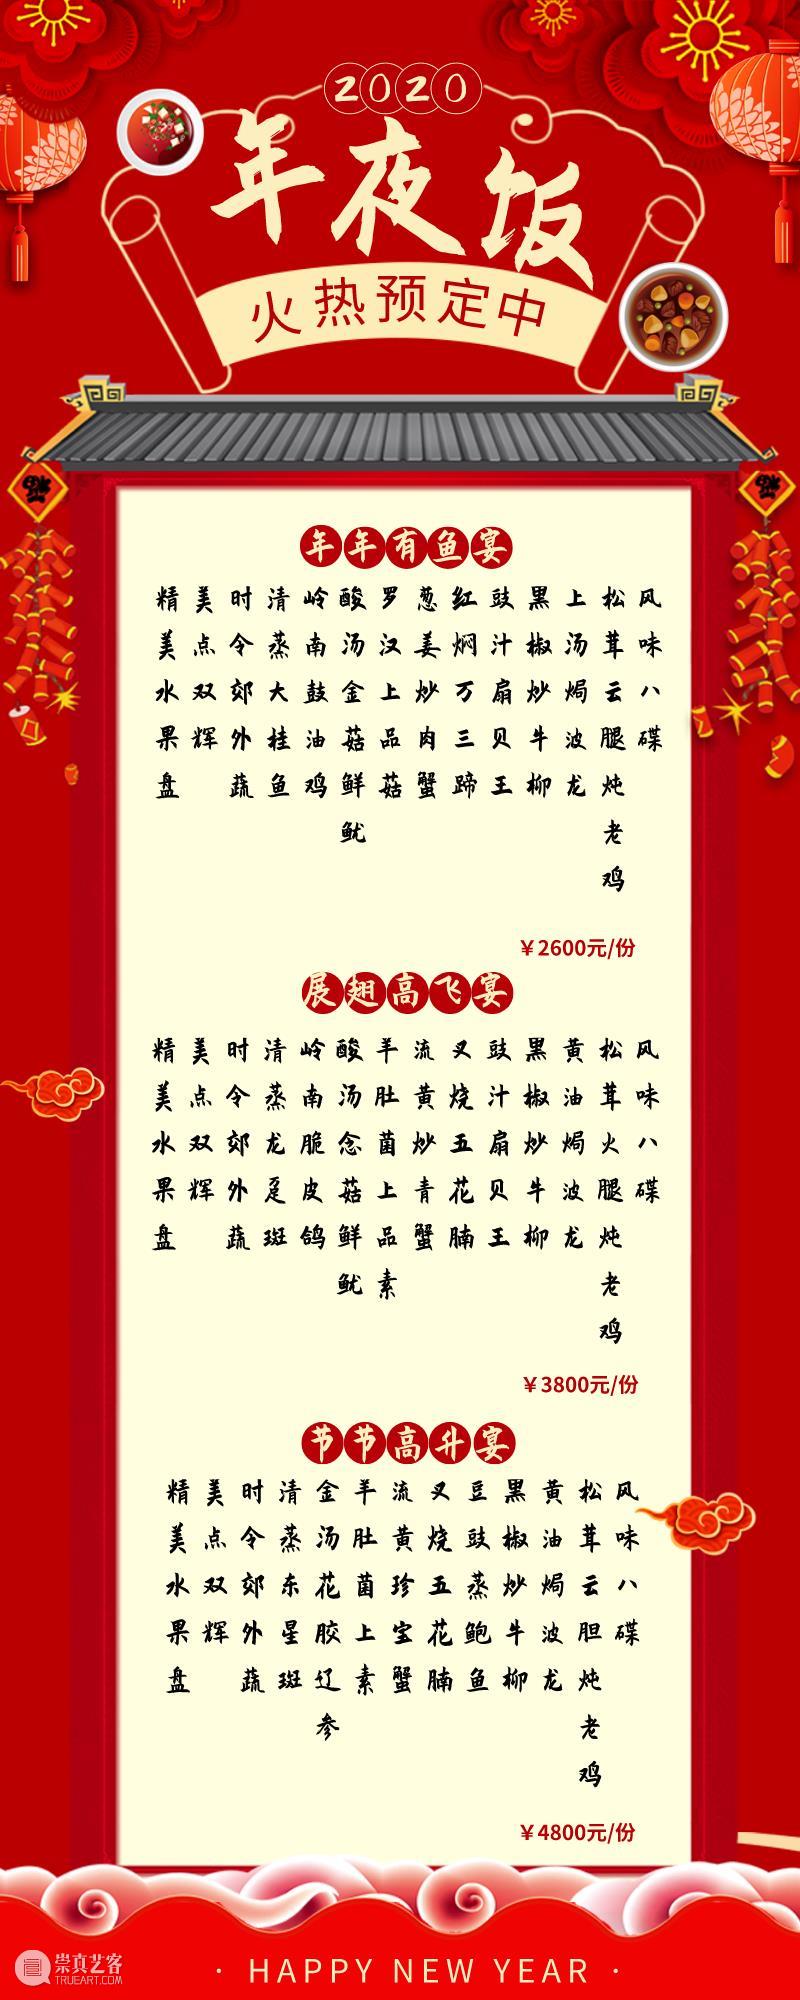 2020
年夜饭
火热预定中
福
福
年年有鱼宴
风味八碟
松茸云腿炖老鸡
上汤焗波龙
黑椒炒牛柳
豉汁扇贝王
红焖万三蹄
葱姜炒肉蟹
罗汉上品菇
酸汤金菇鲜鱿
岭南鼓油鸡
清蒸大桂鱼
时令郊外蔬
美点双辉
精美水果盘
￥2600元/份
展翅高飞宴
风味八碟
松茸火腿炖老鸡
黄油焗波龙
黑椒炒牛柳
豉汁扇贝王
叉烧五花腩
流黄炒青蟹
羊肚菌上品素
酸汤念菇鲜鱿
岭南脆皮鸽
清蒸龙趸斑
时令郊外蔬
美点双辉
精美水果盘
￥3800元/份
节节高升宴
风味八碟
松茸云胆炖老鸡
黄油焗波龙
黑椒炒牛柳
豆豉蒸鲍鱼
叉烧五花腩
流黄珍宝蟹
羊肚菌上素
金汤花胶辽参
清蒸东星斑
时令郊外蔬
美点双辉
精美水果盘
￥4800元/份
· HAPPY NEW YEAR ·
崇真艺客
TRUEART.COM